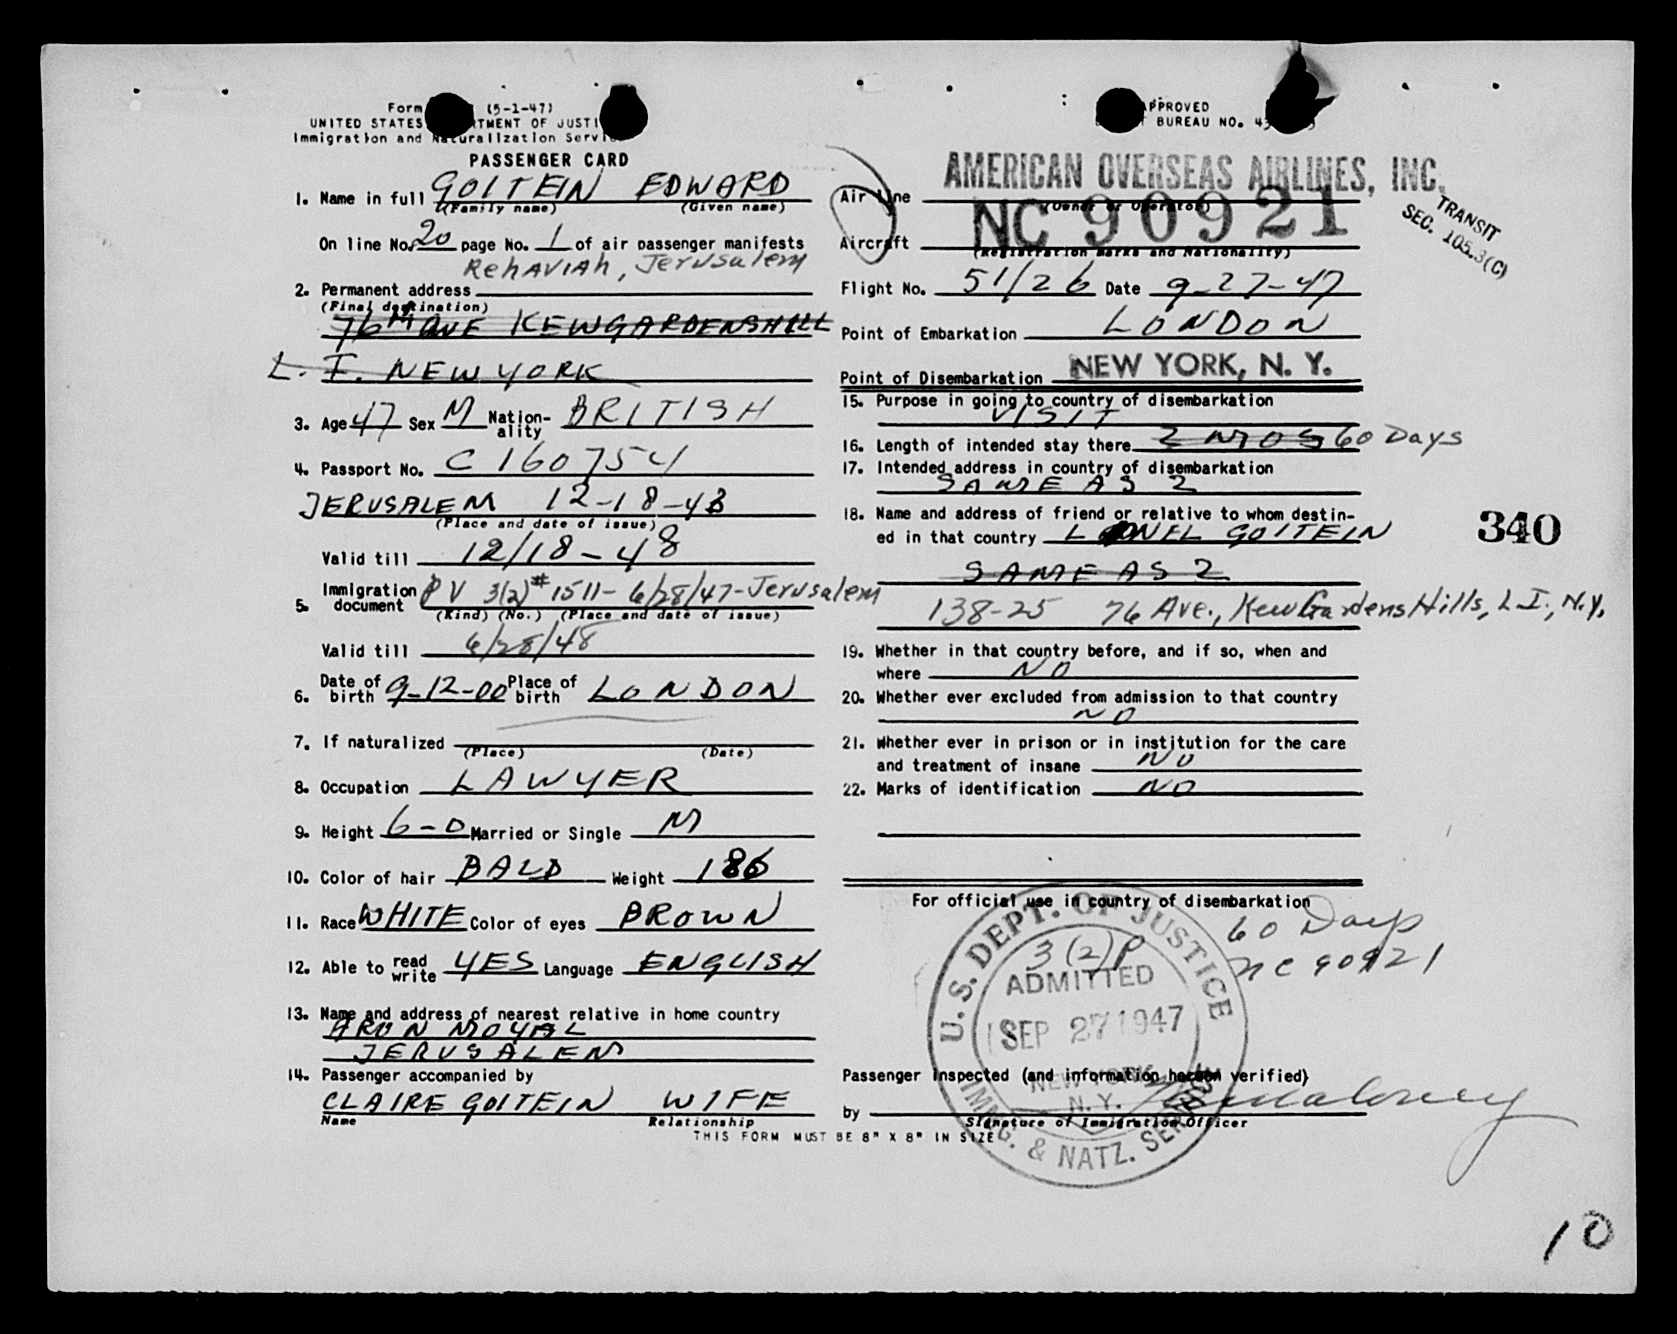 Form (5-1-47)
UNITED STATES DEPARTMENT OF JUSTICE
Immigration and Naturalization Service
PASSENGER CARD
1. Name in full GOITEIN EDWARD
(Family name) (Given name)
On line No. 20 page No. 1 of air passenger manifests
Rehaviah, Jerusalem
2. Permanent address
(Final destination)
76th AVE KEWGARDENSHILL
L. I. NEW YORK
3. Age 47 Sex M Nation-ality BRITISH
4. Passport No. C 160754
JERUSALEM 12-18-43
(Place and date of issue)
Valid till 12/18-48
5. Immigration document PV 3(2) # 1511- 6/28/47-Jerusalem
(Kind) (No.) (Place and date of issue)
Valid till 6/28/48
6. Date of birth 9-12-00 Place of birth LONDON
7. If naturalized
(Place) (Date)
8. Occupation LAWYER
9. Height 6-0 Married or Single M
10. Color of hair BALD Weight 186
11. Race WHITE Color of eyes BROWN
12. Able to read write YES Language ENGLISH
13. Name and address of nearest relative in home country
ARON MOYAL
JERUSALEM
14. Passenger accompanied by
CLAIRE GOITEIN WIFE
Name Relationship
THIS FORM MUST BE 8" X 8" IN SIZE
APPROVED
BUREAU NO. 43
AMERICAN OVERSEAS AIRLINES, INC.
Air line
(Owner or Operator)
TRANSIT
SEC. 105.3(C)
Aircraft NC 90921
(Registration marks and Nationality)
Flight No. 51/26 Date 9-27-47
Point of Embarkation LONDON
Point of Disembarkation NEW YORK, N. Y.
15. Purpose in going to country of disembarkation
VISIT
16. Length of intended stay there 2 MOS 60 Days
17. Intended address in country of disembarkation
SAME AS 2
18. Name and address of friend or relative to whom destin-
ed in that country LIONEL GOITEIN
340
SAME AS 2
138-25 76 Ave., Kew Gardens Hills, L.I., N.Y.
19. Whether in that country before, and if so, when and
where NO
20. Whether ever excluded from admission to that country
NO
21. Whether ever in prison or in institution for the care
and treatment of insane NO
22. Marks of identification NO
For official use in country of disembarkation
60 Days
NC 90921
U. S. DEPT. OF JUSTICE
3(2)P
ADMITTED
SEP 27 1947
NEW YORK
N. Y.
IMMIG. & NATZ. SERVICE
Passenger inspected (and information hereon verified)
by
Signature of Immigration Officer
10